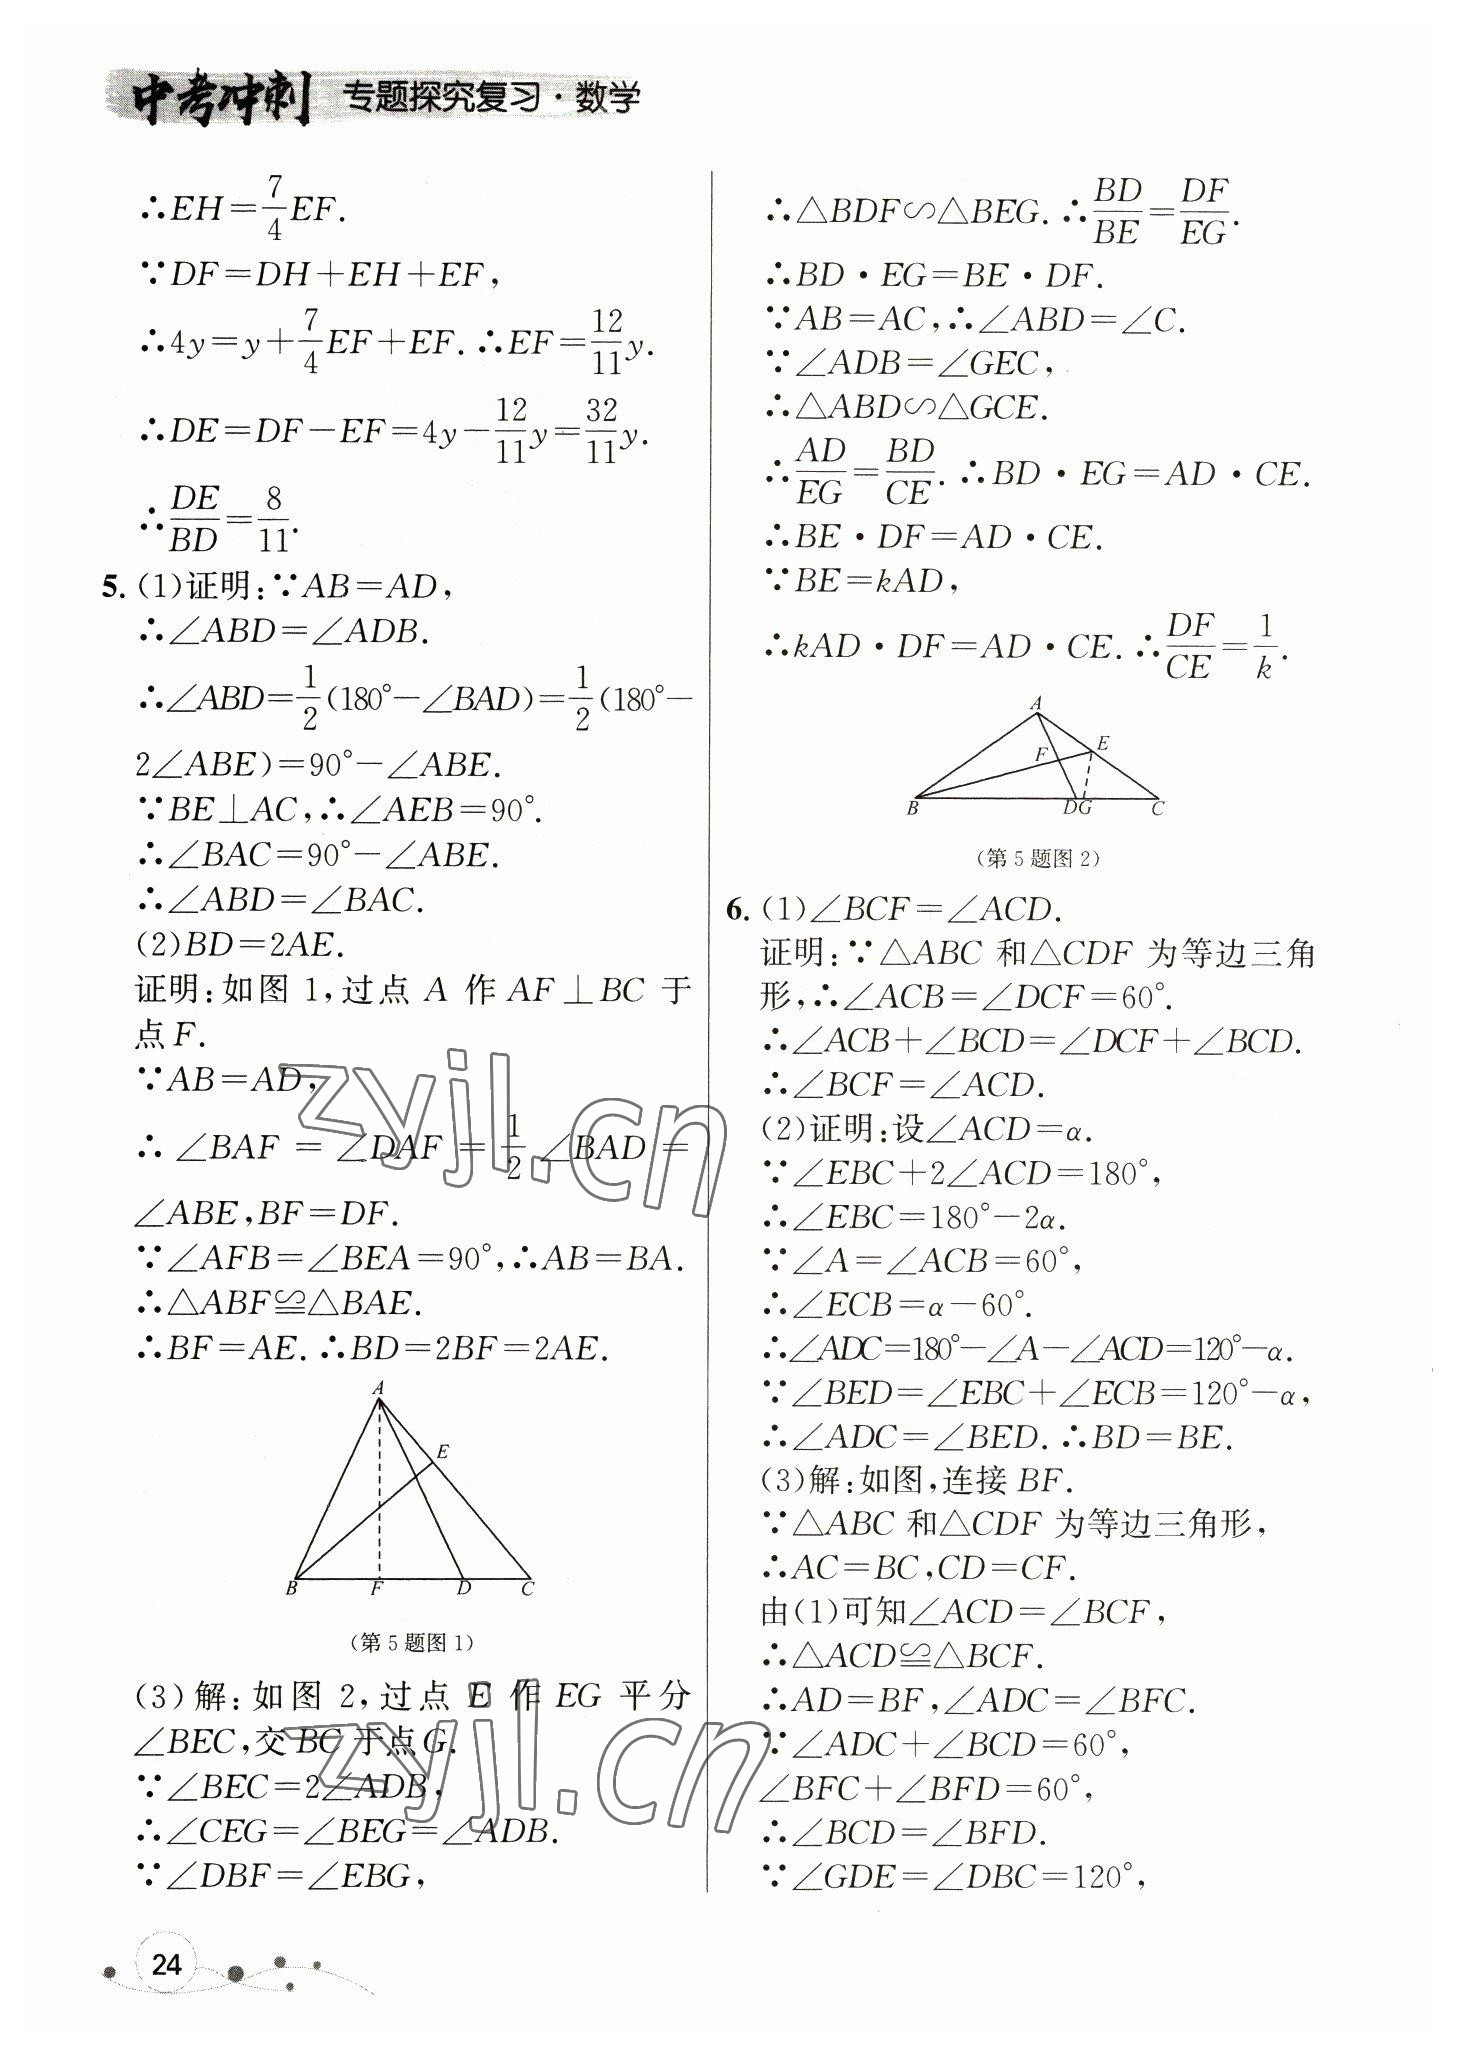 中考冲刺 专题探究复习·数学
∴EH=7/4EF.
∵DF=DH+EH+EF,
∴4y=y+7/4EF+EF.∴EF=12/11y.
∴DE=DF-EF=4y-12/11y=32/11y.
∴DE/BD=8/11.
5.(1)证明:∵AB=AD,
∴∠ABD=∠ADB.
∴∠ABD=1/2(180°-∠BAD)=1/2(180°-
2∠ABE)=90°-∠ABE.
∵BE⊥AC,∴∠AEB=90°.
∴∠BAC=90°-∠ABE.
∴∠ABD=∠BAC.
(2)BD=2AE.
证明:如图1,过点A作AF⊥BC于
点F.
∵AB=AD,
∴∠BAF=∠DAF=1/2∠BAD=
∠ABE,BF=DF.
∵∠AFB=∠BEA=90°,∴AB=BA.
∴△ABF≌△BAE.
∴BF=AE.∴BD=2BF=2AE.
A
E
B F D C
(第5题图1)
(3)解:如图2,过点E作EG平分
∠BEC,交BC于点G.
∵∠BEC=2∠ADB,
∴∠CEG=∠BEG=∠ADB.
∵∠DBF=∠EBG,
∴△BDF∽△BEG.∴BD/BE=DF/EG.
∴BD·EG=BE·DF.
∵AB=AC,∴∠ABD=∠C.
∵∠ADB=∠GEC,
∴△ABD∽△GCE.
∴AD/EG=BD/CE.∴BD·EG=AD·CE.
∴BE·DF=AD·CE.
∵BE=kAD,
∴kAD·DF=AD·CE.∴DF/CE=1/k.
A
F E
B DG C
(第5题图2)
6.(1)∠BCF=∠ACD.
证明:∵△ABC和△CDF为等边三角
形,∴∠ACB=∠DCF=60°.
∴∠ACB+∠BCD=∠DCF+∠BCD.
∴∠BCF=∠ACD.
(2)证明:设∠ACD=α.
∵∠EBC+2∠ACD=180°,
∴∠EBC=180°-2α.
∵∠A=∠ACB=60°,
∴∠ECB=α-60°.
∴∠ADC=180°-∠A-∠ACD=120°-α.
∵∠BED=∠EBC+∠ECB=120°-α,
∴∠ADC=∠BED.∴BD=BE.
(3)解:如图,连接BF.
∵△ABC和△CDF为等边三角形,
∴AC=BC,CD=CF.
由(1)可知∠ACD=∠BCF,
∴△ACD≌△BCF.
∴AD=BF,∠ADC=∠BFC.
∵∠ADC+∠BCD=60°,
∠BFC+∠BFD=60°,
∴∠BCD=∠BFD.
∵∠GDE=∠DBC=120°,
24
zyjl.cn
zyjl.cn